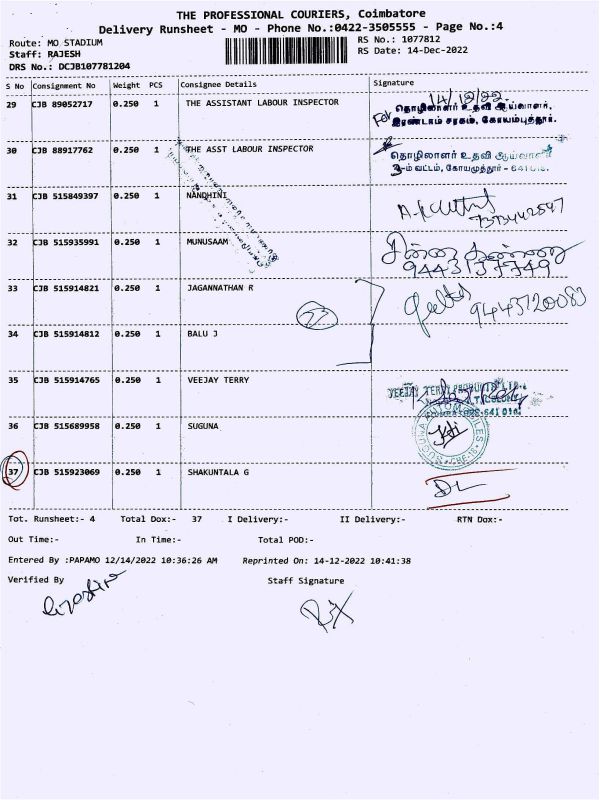 THE PROFESSIONAL COURIERS, Coimbatore
Delivery Runsheet - MO - Phone No.:0422-3505555 - Page No.:4
Route: MO STADIUM
RS No.: 1077812
Staff: RAJESH
RS Date: 14-Dec-2022
DRS No.: DCJB107781204
S No Consignment No Weight PCS Consignee Details Signature
29 CJB 89052717 0.250 1 THE ASSISTANT LABOUR INSPECTOR
14/12/22
For தொழிலாளர் உதவி ஆய்வாளர்,
இரண்டாம் சரகம், கோயம்புத்தூர்.
30 CJB 88917762 0.250 1 THE ASST LABOUR INSPECTOR
தொழிலாளர் உதவி ஆய்வாளர்
3-ம் வட்டம், கோயமுத்தூர் - 641 018.
31 CJB 515849397 0.250 1 NANDHINI
32 CJB 515935991 0.250 1 MUNUSAAM
9443137749
33 CJB 515914821 0.250 1 JAGANNATHAN R
9443720083
34 CJB 515914812 0.250 1 BALU J
35 CJB 515914765 0.250 1 VEEJAY TERRY
VEEJAY TERRY PRODUCTS LTD.,
36 CJB 515689958 0.250 1 SUGUNA
SUGUNA AUTOMOBILES
CBE-18
37 CJB 515923069 0.250 1 SHAKUNTALA G
Tot. Runsheet:- 4 Total Dox:- 37 I Delivery:- II Delivery:- RTN Dox:-
Out Time:- In Time:- Total POD:-
Entered By :PAPAMO 12/14/2022 10:36:26 AM Reprinted On: 14-12-2022 10:41:38
Verified By Staff Signature